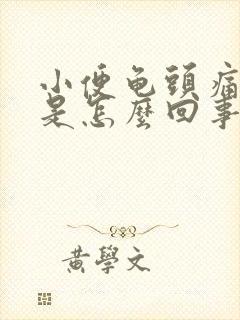 小便龟頭痛
是怎麼回事
黃學文